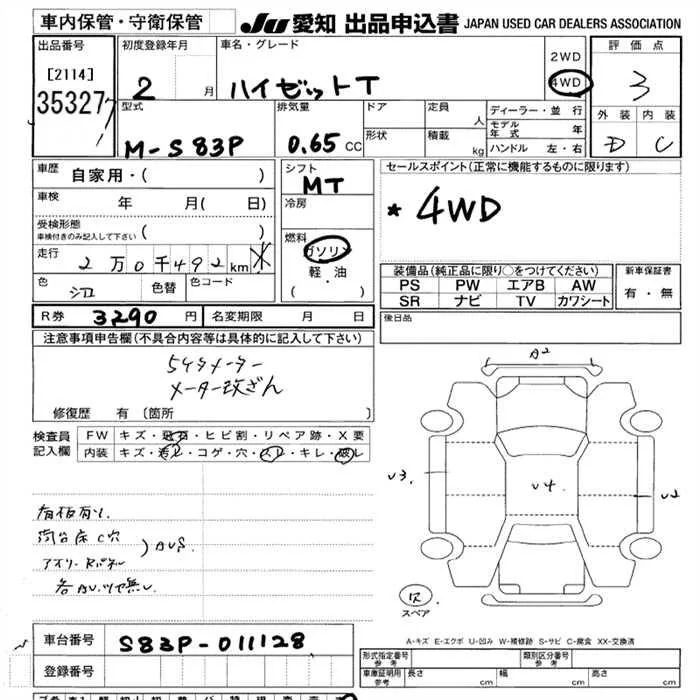 車内保管・守衛保管
JU 愛知 出品申込書 JAPAN USED CAR DEALERS ASSOCIATION
出品番号
[2114]
35327
初度登録年月
2 月
車名・グレード
ハイゼットT
2WD
4WD
評価点
3
外装 内装
D C
型式
M-S83P
排気量
0.65 CC
ドア
形状
定員 人
積載 kg
ディーラー・並行
モデル年式 年
ハンドル 左・右
車歴 自家用・( )
車検 年 月( 日)
受検形態
車検付きのみ記入して下さい ( )
走行 2万0千492km ※
色 色替 色コード
シフト
MT
冷房
燃料
ガソリン
軽・油
(・ )
セールスポイント(正常に機能するものに限ります)
* 4WD
装備品(純正品に限り○をつけてください)
PS PW エアB AW
SR ナビ TV カワシート
新車保証書
有・無
後日品
R券 3290 円 名変期限 月 日
注意事項申告欄(不具合内容等は具体的に記入して下さい)
5ケタメーター
メーター改ざん
修復歴 有〔箇所 〕
検査員
記入欄
FW キズ・飛石・ヒビ割・リペア跡・X要
内装 キズ・汚レ・コゲ・穴・スレ・キレ・破レ
看板有り
荷台床C穴
AUS
各カバーツヤ無し
A2
U3
U4
U2
スペア
A-キズ E-エクボ U-凹み W-補修跡 S-サビ C-腐食 XX-交換済
車台番号 S83P-011128
登録番号
形式指定番号
参考
類別区分番号
参考
車庫証明用
参考
長さ 幅 高さ